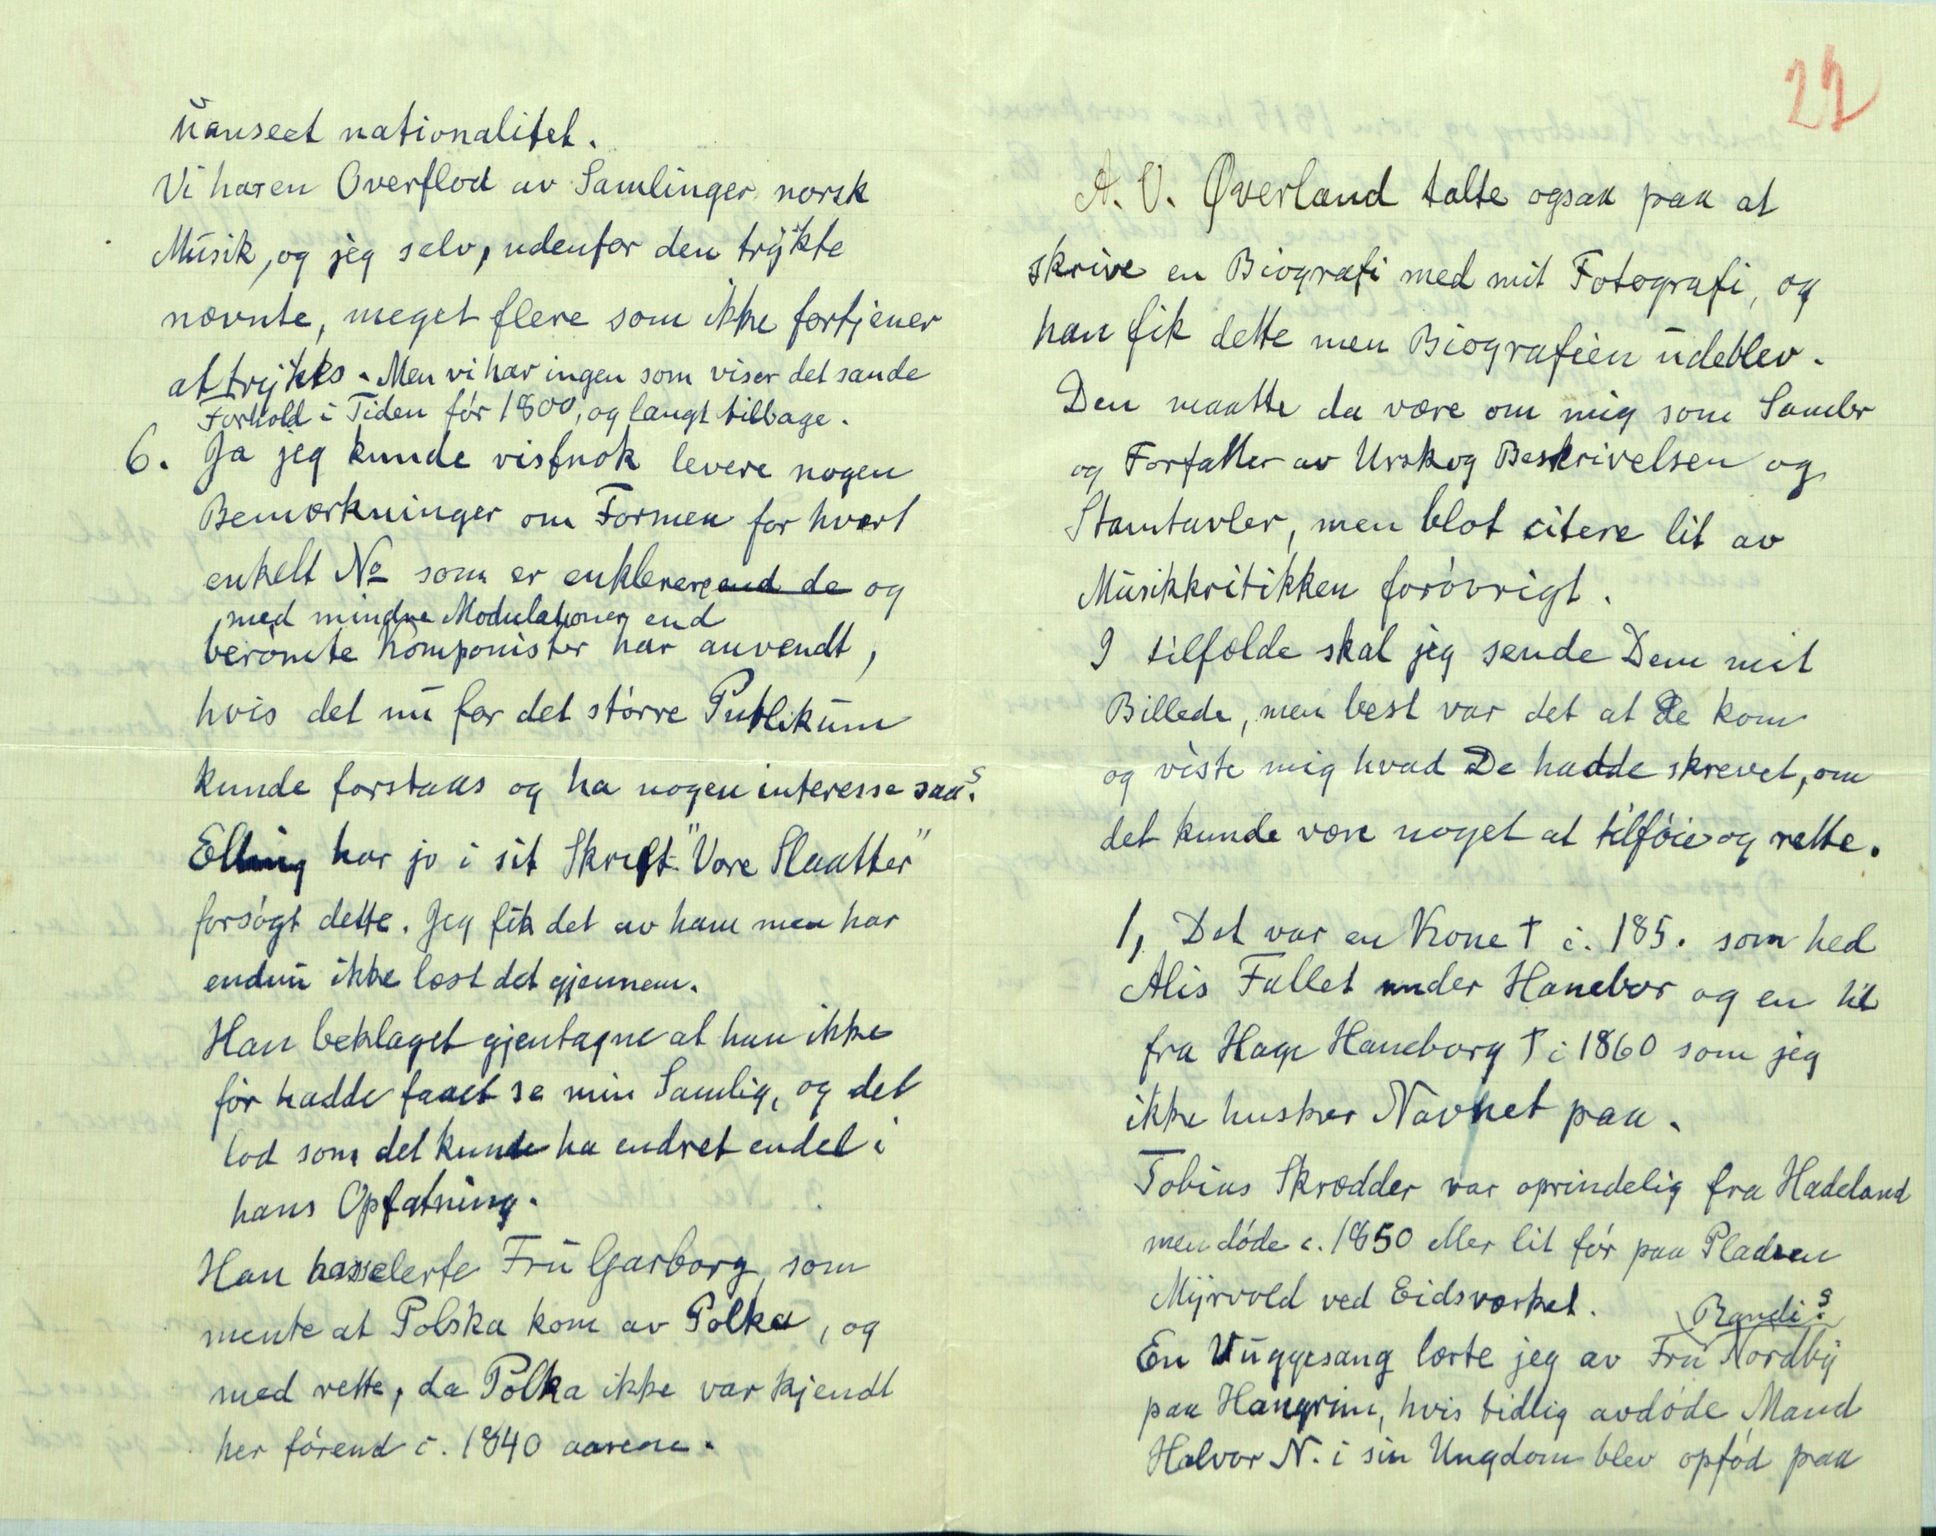 uanseet nationalitet.
Vi har en Overflod av Samlinger norsk
Musik, og jeg selv, udenfor den trykte
nævnte, meget flere som ikke fortjener
at trykkes. Men vi har ingen som viser det sande
Forhold i Tiden før 1800, og langt tilbage.
6. Ja jeg kunde visfnok levere nogen
Bemærkninger om Formen for hvert
enkelt No som er enklere end de og
med mindre Modulationer end
berömte Komponister har anvendt,
hvis det nu for det större Publikum
kunde forstaas og ha nogen interesse saa?
Elling har jo i sit Skrift "Vore Slaatter"
forsögt dette. Jeg fik det av ham men har
endnu ikke læst det gjennem.
Han beklaget gjentagne at han ikke
för hadde faaet se min Samlig, og det
lod som det kunde ha endret endel i
hans Opfatning.
Han harselerte Fru Garborg, som
mente at Polska kom av Polka, og
med rette, da Polka ikke var kjendt
her förend c. 1840 aarene.
22
A. O. Øverland talte ogsaa paa at
skrive en Biografi med mit Fotografi, og
han fik dette men Biografien udeblev.
Den maatte da være om mig som Samler
og Forfatter av Urskog Beskrivelsen og
Stamtavler, men blot citere lit av
Musikkritikken forövrigt.
I tilfælde skal jeg sende Dem mit
Billede, men best var det at De kom
og viste mig hvad De hadde skrevet, om
det kunde være noget at tilföie og rette.
1, Det var en Kone † c. 185. som hed
Alis Fallet under Hanebor og en til
fra Hage Haneborg † i 1860 som jeg
ikke husker Navnet paa.
Tobias Skrædder var oprindelig fra Hadeland
men döde c. 1850 eller lit för paa Pladsen
Myrvold ved Eidsværket.
Randi?
En Vuggesang lærte jeg av Fru Nordby
paa Hangrim, hvis tidlig avdöde Mand
Halvor N. i sin Ungdom blev opföd paa